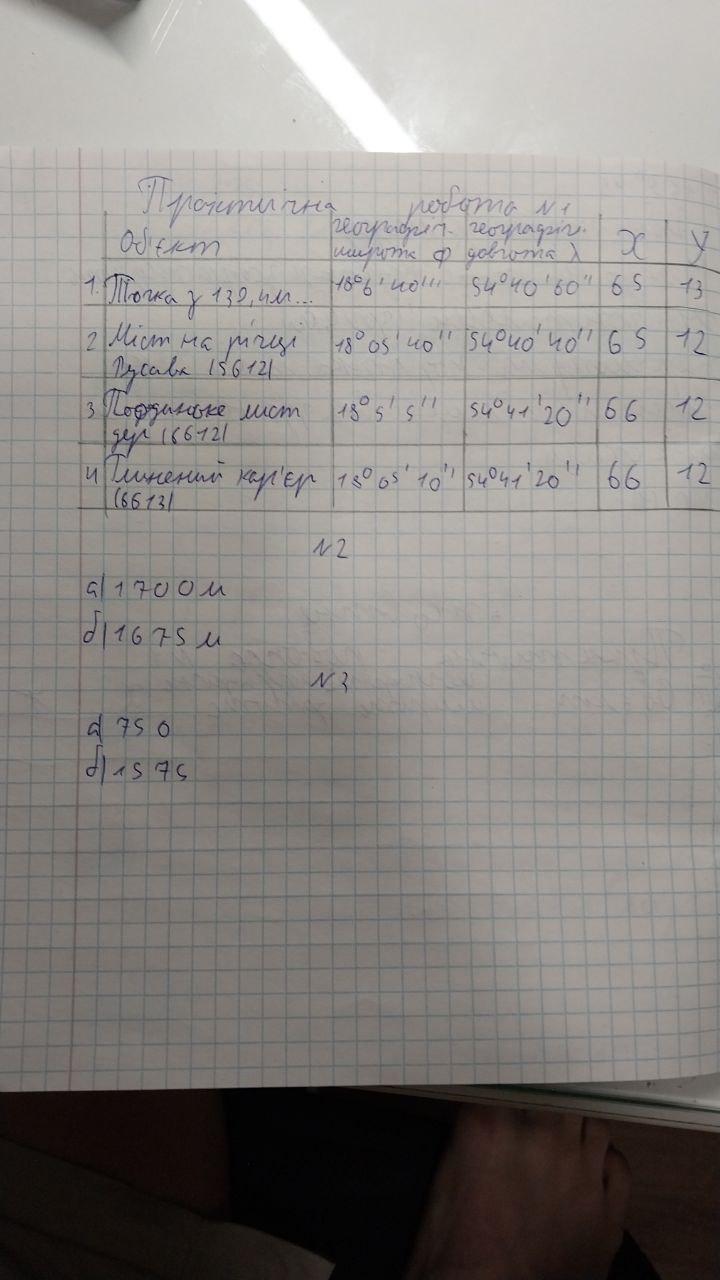 Практична робота №1
Об'єкт географіч. широта φ географіч. довгота λ X У
1. Точка з 139, пм... 18°6'40''' 54°40'60'' 65 13
2 Міст на річці Русава (5612) 18°05'40'' 54°40'40'' 65 12
3 лист дер (6612) 18°5'5'' 54°41'20'' 66 12
4 Глинений кар'єр (6613) 18°05'10'' 54°41'20'' 66 12
№2
а) 1700м
б) 1675м
№3
а) 750
б) 1575